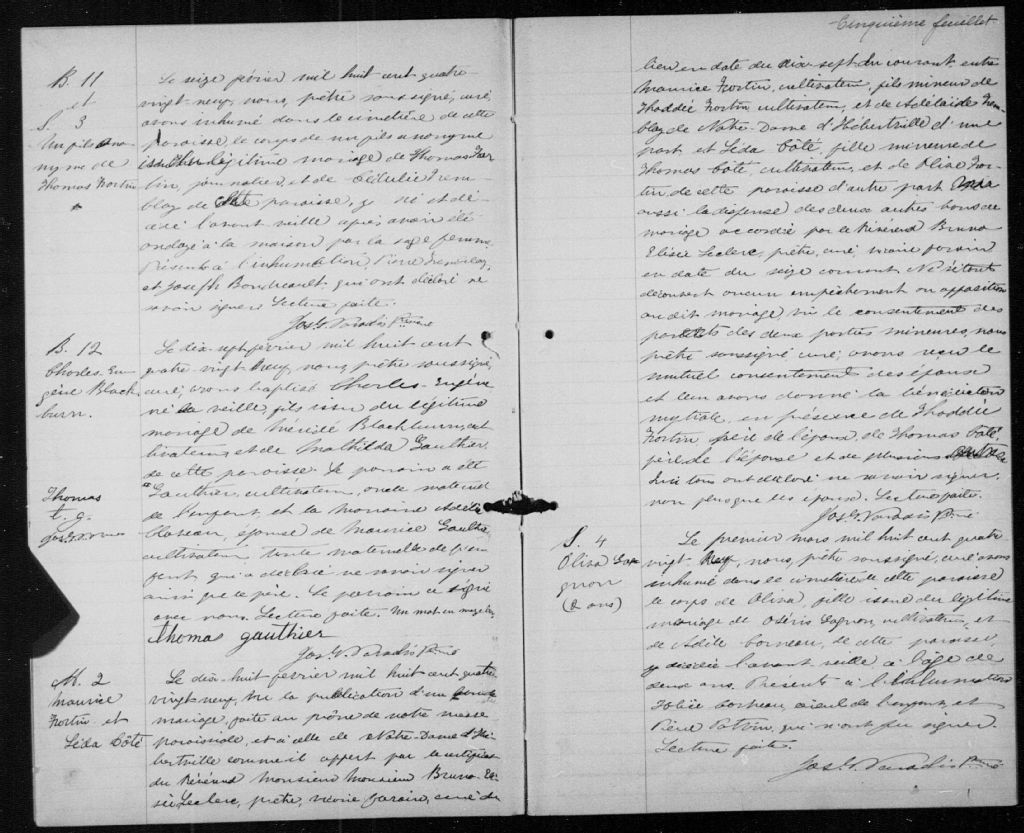 B. 11
et
S. 3
Un fils ano-
nyme de
Thomas Fortin
Le seize février mil huit cent quatre-
vingt-neuf, nous, prêtre soussigné, curé,
avons inhumé dans le cimetière de cette
paroisse le corps de un fils anonyme
légitime mariage de Thomas For
tin, journalier, et de Célulie Trem
blay de cette paroisse, y né et dé-
cédé l'avant veille après avoir été
ondoyé à la maison par la sage femme
Présents à l'inhumation, Pierre Tremblay,
et Joseph Boudreault qui ont déclaré ne
savoir signer Lecture faite.
Jos. G. Paradis Ptre
B. 12
Charles-Eu-
gène Black
burn.
Le dix-sept février mil huit cent
quatre vingt-neuf, nous, prêtre soussigné,
curé, avons baptisé Charles-Eugène
né la veille, fils issu du légitime
mariage de Mérédé Blackburn, cul
tivateur, et de Mathilda Gauthier
de cette paroisse. Le parrain a été
Gauthier, cultivateur, oncle maternel
de l'enfant, et la marraine Adèle
Blaseau, épouse de Maurice Gauthier
cultivateur, tante maternelle de l'en-
fant, qui a déclaré ne savoir signer
ainsi que le père. Le parrain a signé
avec nous. Lecture faite. Un mot en marge
Thomas
t. g.
Thomas gauthier
Jos. G. Paradis Ptre
M. 2
Maurice
Fortin et
Léda Côté
Le dix-huit février mil huit cent quatre
vingt-neuf, vu la publication d'un
mariage, faite au prône de notre messe
paroissiale, et à celle de Notre-Dame d'Hé-
bertville comme il appert par le certificat
du Révérend Monsieur Monsieur Bruno-El
sée Leclerc, prêtre, curé du
Cinquième feuillet
lieu en date du dix-sept du courant entre
Maurice Fortin, cultivateur, fils mineur de
Thaddée Fortin cultivateur, et de Adélaïde Trem-
blay de Notre-Dame d'Hébertville d'une
part et Léda Côté, fille mineure de
Thomas Côté, cultivateur, et de Olive For-
tin de cette paroisse d'autre part
aussi la dispense des deux autres bans de
mariage accordée par le Révérend Bruno
Elisée Leclerc, prêtre, curé, vicaire forain
en date du seize courant Ne s'étant
découvert aucun empêchement ou opposition
au dit mariage vu le consentement des
parents des deux parties mineures, nous
prêtre soussigné curé avons reçu le
mutuel consentement des époux
et leur avons donné la bénédiction
nuptiale, en présence de Thaddée
Fortin père de l'époux, de Thomas Côté
père de l'épouse et de plusieurs
qui tous ont déclaré ne savoir signer
non plus que les époux. Lecture faite.
Jos. G. Paradis Ptre
S. 4
Oliva Ga-
gnon
(2 ans)
Le premier mars mil huit cent quatre
vingt-neuf, nous, prêtre soussigné, curé avons
inhumé dans le cimetière de cette paroisse
le corps de Oliva, fille issue du légitime
mariage de Osiris Gagnon, cultivateur, et
de Adèle Corneau, de cette paroisse
y décédée l'avant veille à l'âge de
deux ans. Présents à l'inhumation
Folice Corneau, aieul de l'enfant, et
Pierre Potvin, qui n'ont su signer.
Lecture faite.
Jos. G. Paradis Ptre